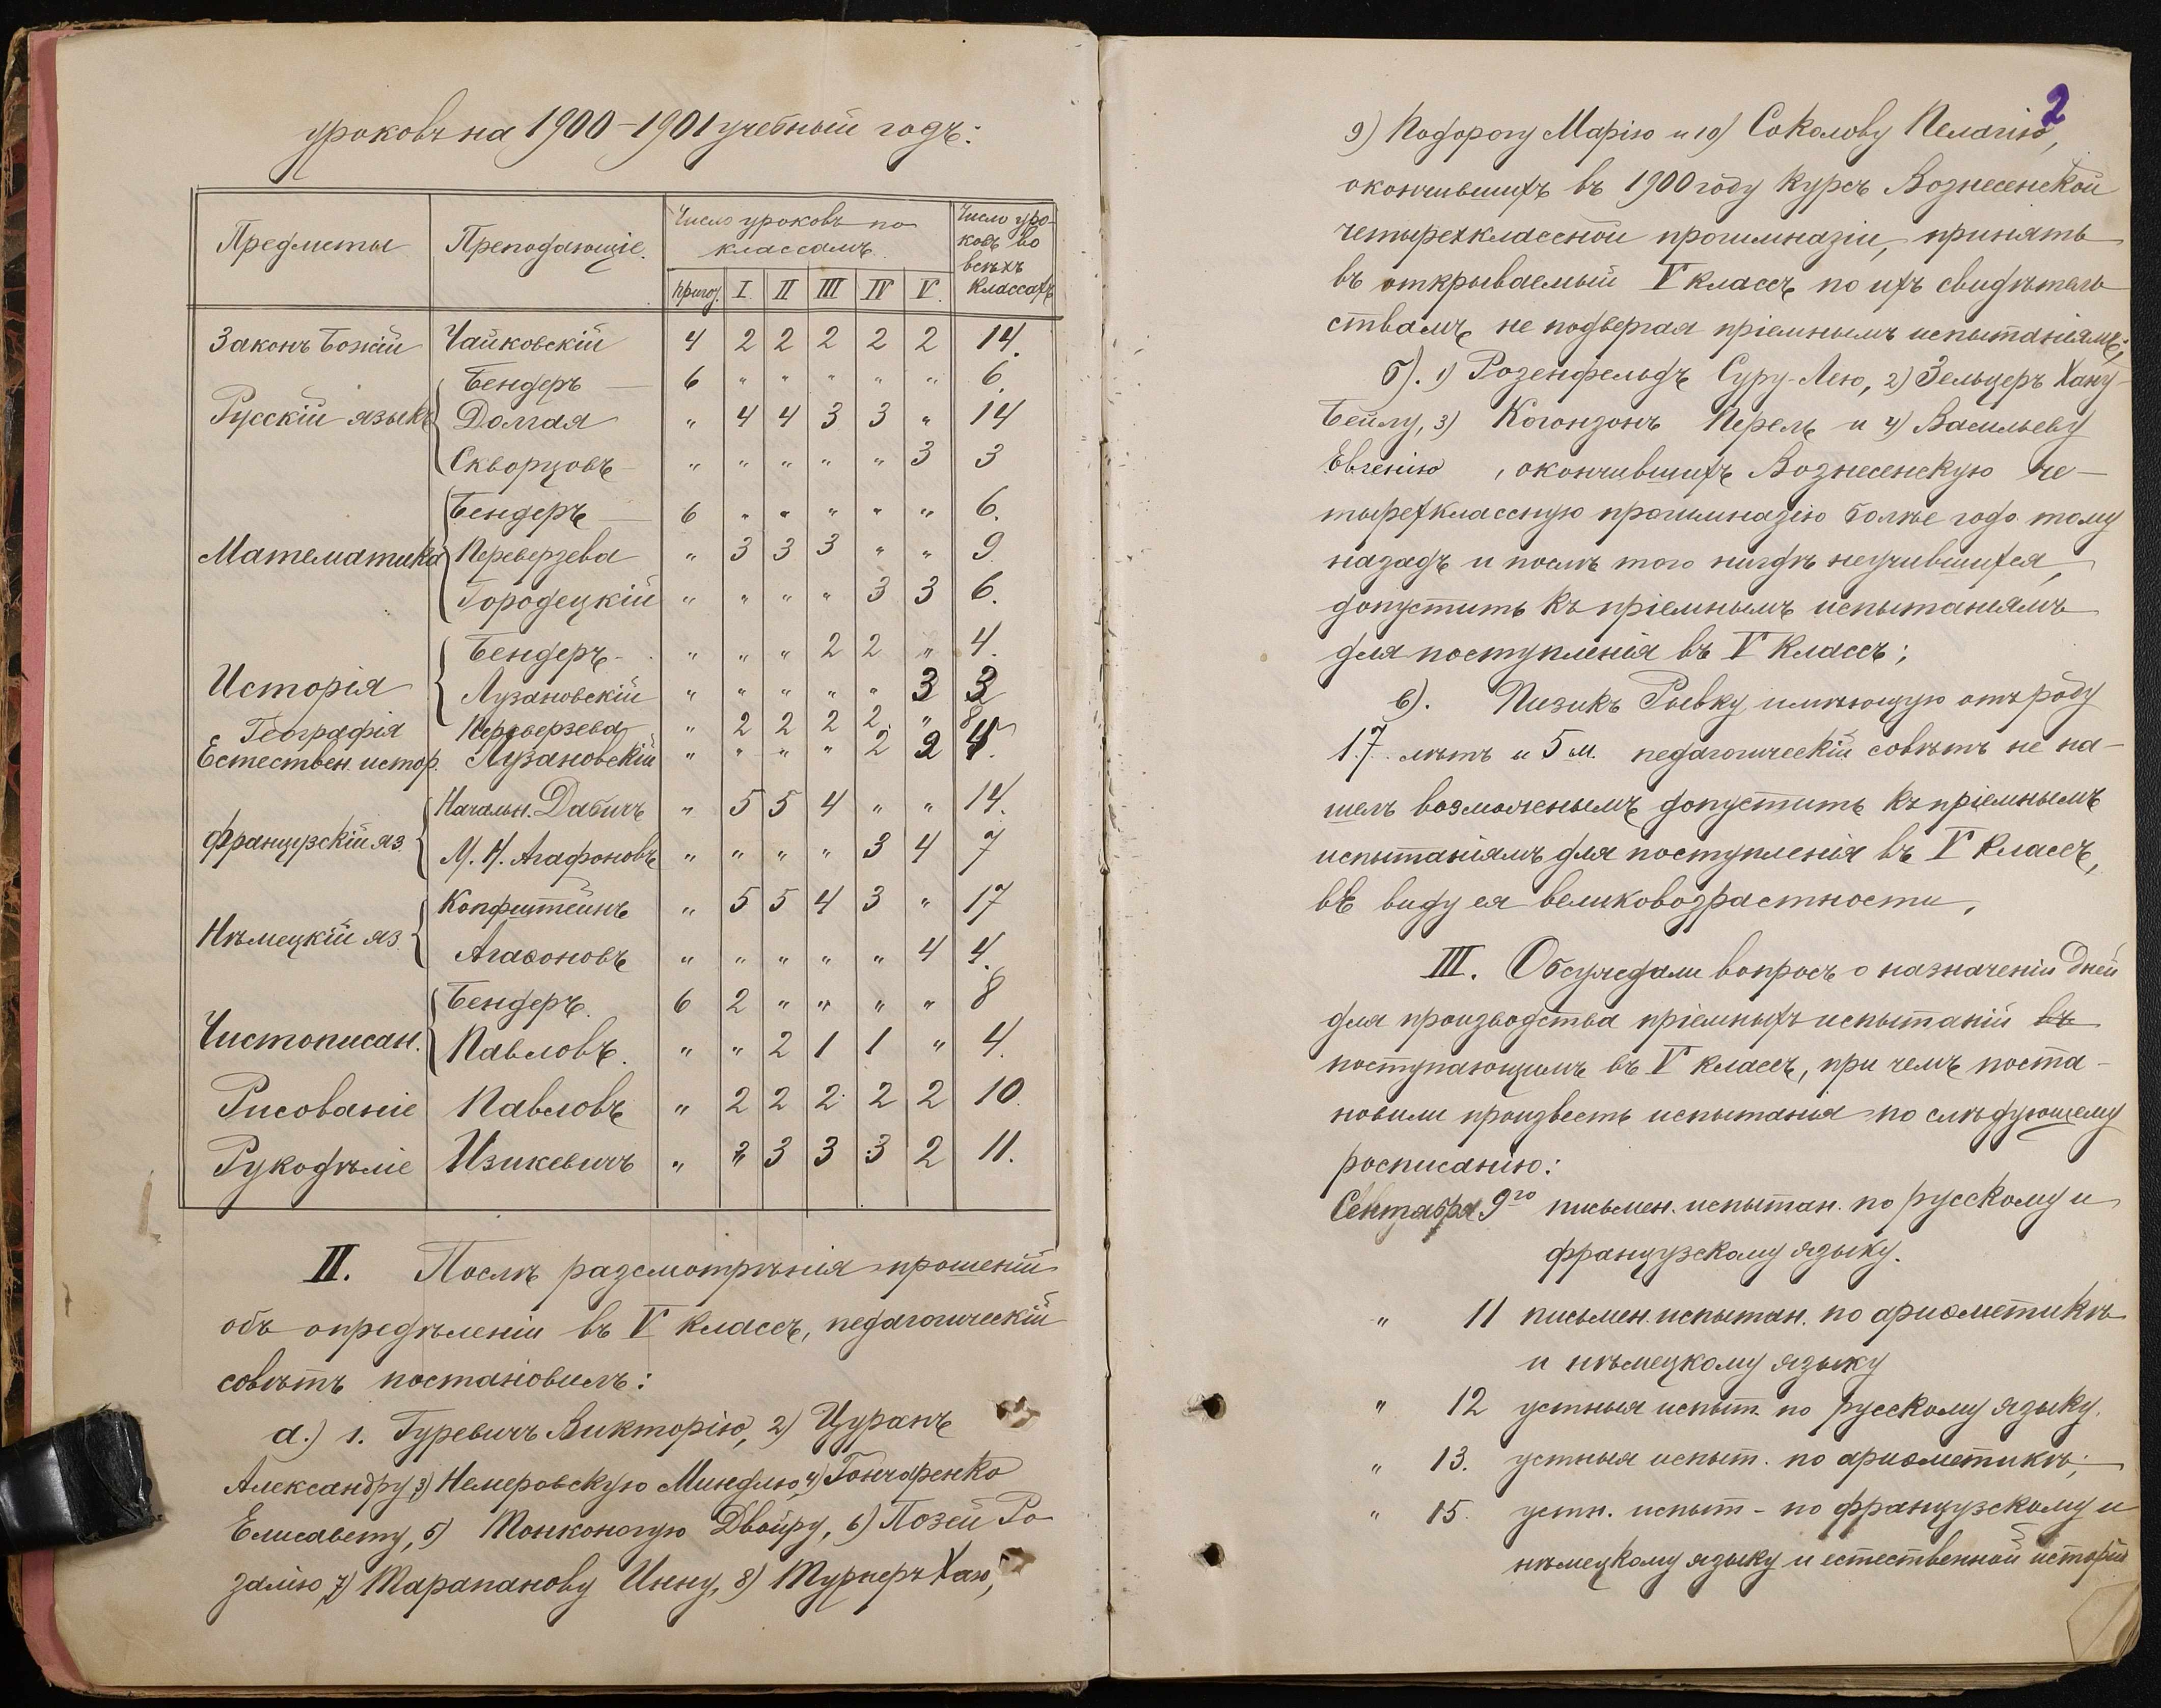 уроковъ на 1900-1901 учебный годъ:
Предметы Преподающіе. Число уроковъ по классамъ. Число уроковъ во всѣхъ классахъ
Пригот. I. II III IV V.
Законъ Божій Чайковскій 4 2 2 2 2 2 14.
Русскій языкъ Бендеръ 6 " " " " " 6.
Долгая " 4 4 3 3 " 14
Скворцовъ " " " " " 3 3
Математика Бендеръ 6 " " " " " 6.
Переверзева " 3 3 3 " " 9
Городецкій " " " " 3 3 6.
Исторія Бендеръ " " " 2 2 " 4.
Лузановскій " " " " " 3 3
Географія Переверзева " 2 2 2 2. " 8
Естествен. истор. Лузановскій " " " " 2 2 4.
Французскій яз. Начальн. Дабичъ " 5 5 4 " " 14.
М. Н. Агафоновъ " " " " 3 4 7
Нѣмецкій яз. Копфштейнъ " 5 5 4 3 " 17
Агаѳоновъ " " " " " 4 4.
Чистописан. Бендеръ. 6 2 " " " " 8
Павловъ. " " 2 1 1 " 4.
Рисованіе Павловъ " 2 2 2 2 2 10
Рукодѣліе Изикевичъ " " 3 3 3 2 11.
II. Послѣ разсмотрѣнія прошеній
объ опредѣленіи въ V классъ, педагогическій
совѣтъ постановилъ:
а.) 1. Гуревичъ Викторію, 2) Цуранъ
Александру, 3) Немеровскую Миндлю, 4) Гончаренко
Елисавету, 5) Тонконогую Двойру, 6) Позей Ро
залію, 7) Тарапанову Инну, 8) Турнеръ Хаю,
2
9) Подорогу Марію и 10) Соколову Пелагію,
окончившихъ въ 1900 году курсъ Вознесенской
четырехклассной прогимназіи, принять
въ открываемый V классъ по ихъ свидѣтель
ствамъ, не подвергая пріемнымъ испытаніямъ;
б). 1) Розенфельдъ Суру-Лею, 2) Зельцеръ Хану-
Бейлу, 3) Когонзонъ Перель и 4) Васильеву
Евгенію, окончившихъ Вознесенскую че-
тырехклассную прогимназію болѣе года тому
назадъ и послѣ того нигдѣ неучившихся,
допустить къ пріемнымъ испытаніямъ
для поступленія въ V классъ;
в). Пизикъ Рывку, имѣющую отъ роду
17 лѣтъ и 5 м. педагогическій совѣтъ не на-
шелъ возможнымъ допустить къ пріемнымъ
испытаніямъ для поступленія въ V классъ,
въ виду ея великовозрастности.
III. Обсуждали вопросъ о назначеніи дней
для производства пріемныхъ испытаній въ
поступающимъ въ V классъ, при чемъ поста-
новили произвесть испытанія по слѣдующему
росписанію:
Сентября 9го письмен. испытан. по русскому и
французскому языку.
" 11 письмен. испытан. по ариѳметикѣ
и нѣмецкому языку
" 12 устныя испыт. по русскому языку.
" 13. устныя испыт. по ариѳметикѣ;
" 15. устн. испыт - по французскому и
нѣмецкому языку и естественной исторіи